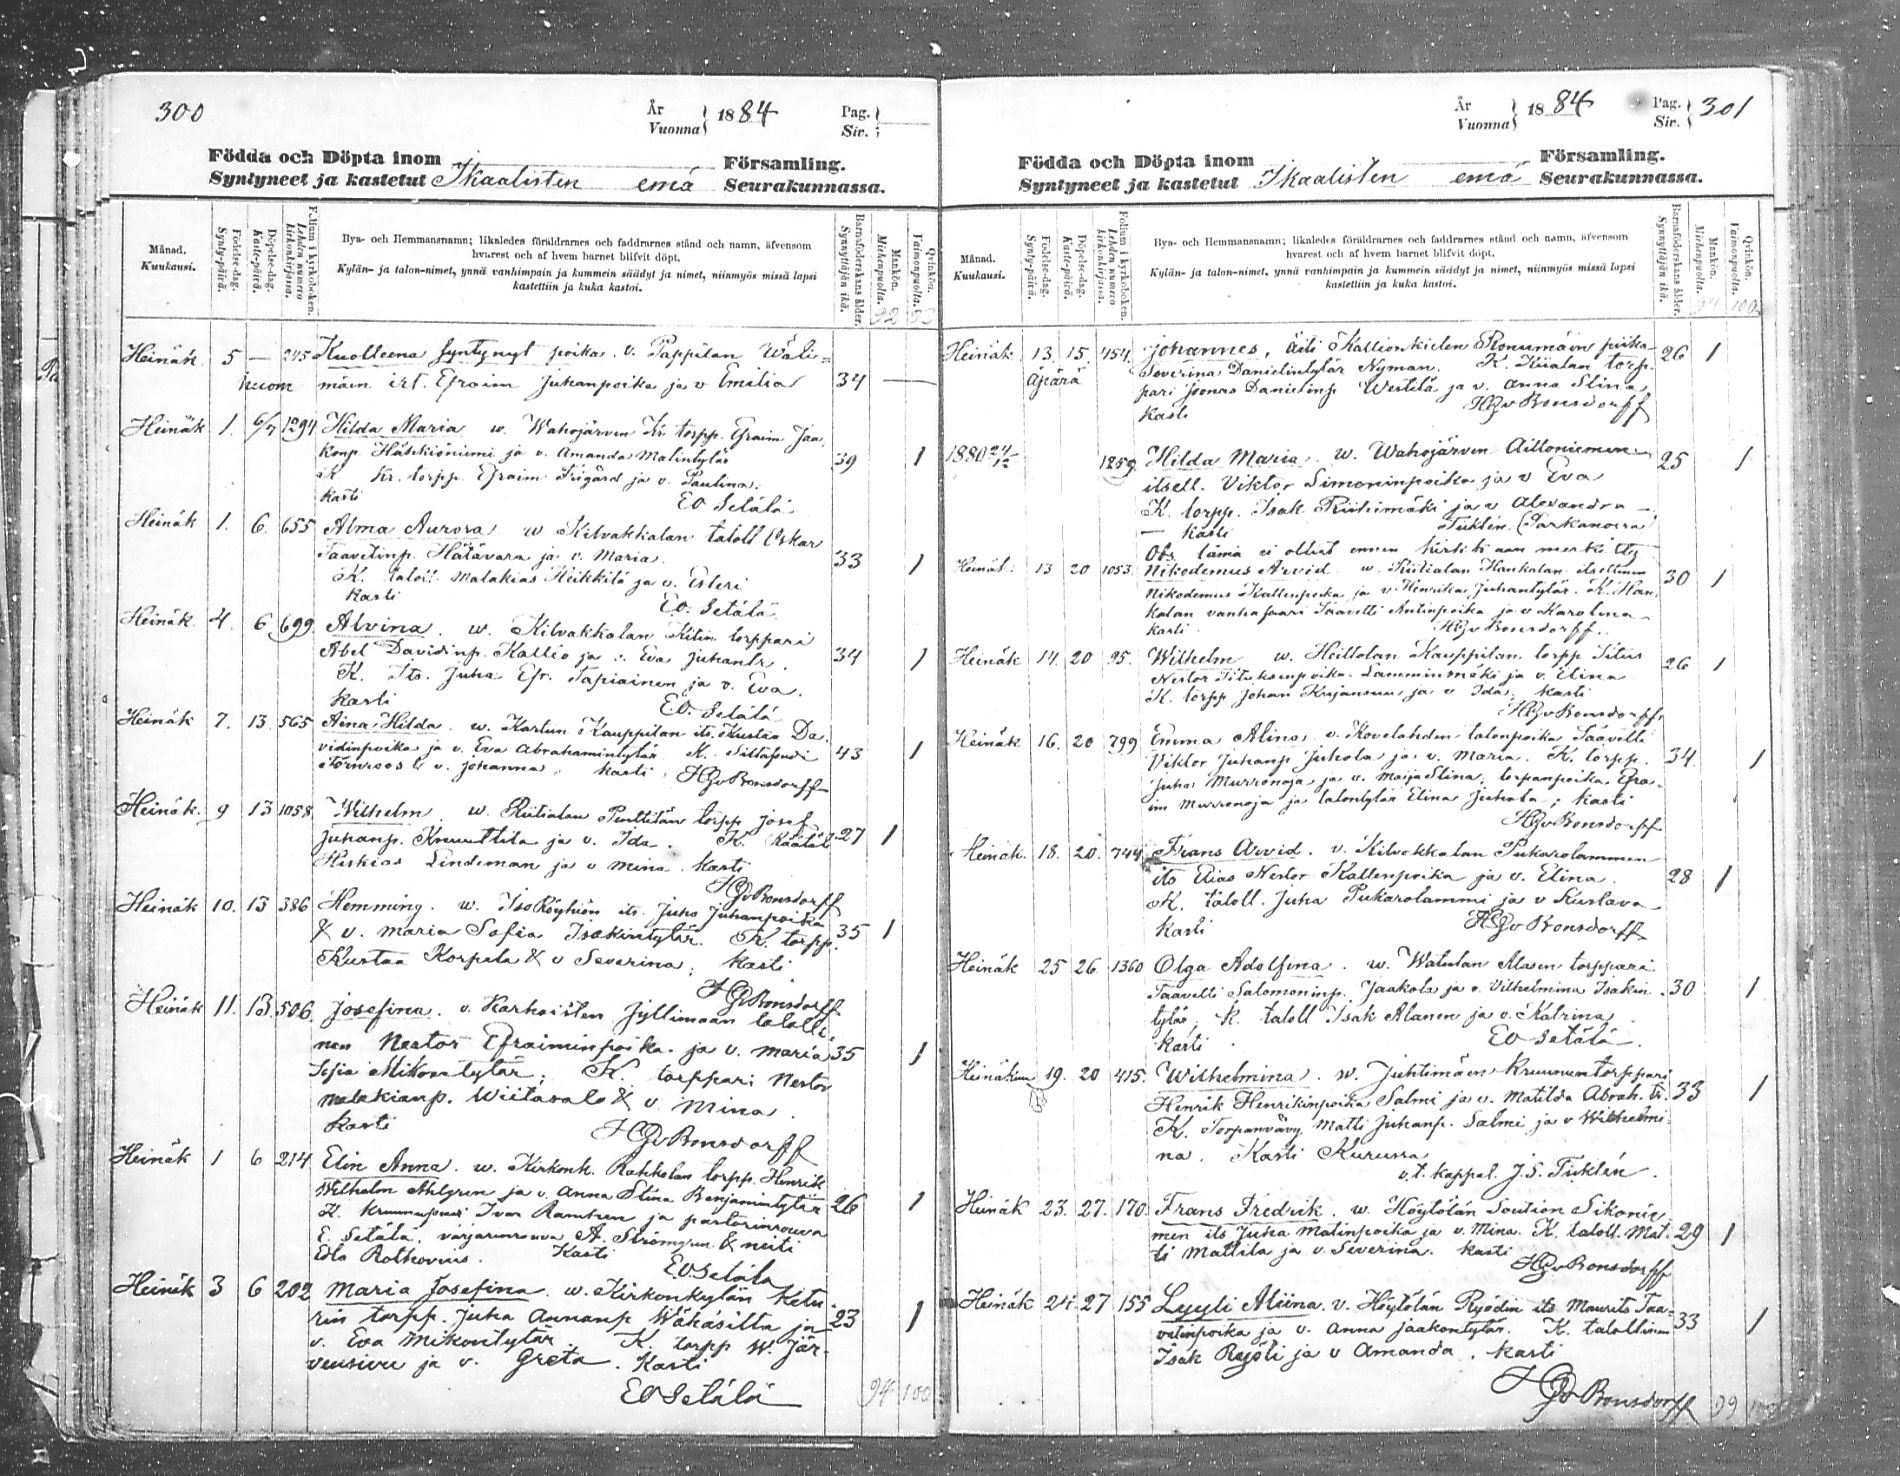 300
År
Vuonna
1884
Pag.
Siv.
Födda och Döpta inom
Församling.
Syntyneet ja kastetut Ikaalisten emä Seurakunnassa.
Månad.
Kuukausi.
Födelse-dag.
Synty-päivä.
Döpelse-dag.
Kaste-päivä.
Folium i kyrkoboken.
Lehden numero kirkonkirjassa.
Bya- och Hemmansnamn; likaledes föräldrarnes och faddrarnes stånd och namn, äfvensom
hvarest och af hvem barnet blifvit döpt.
Kylän- ja talon-nimet, ynnä vanhimpain ja kummein säädyt ja nimet, niinmyös missä lapsi
kastettiin ja kuka kastoi.
Barnaföderskans ålder.
Synnyttäjän ikä.
Mankön.
Miehenpuolta.
Qvinkön.
Vaimonpuolta.
Heinäk 5 — 245 Kuolleena syntynyt poika. v. Pappilan Wäli=
mäen itl. Efraim Juhanpoika ja v Emilia 34
Heinäk 1. 6/7 1294 Hilda Maria w. Wahojärven Kr torpp. Efraim Jaa
konp. Häkkiöniemi ja v. Amanda Matintytär 39 1
K Kr. torpp. Efraim Frigård ja v. Paulina.
kasti EO Setälä
Heinäk 1. 6. 655 Alma Aurora w Kilvakkalan taloll Oskar
Taavetinp. Hätävara ja v. Maria. 33 1
K. taloll. Malakias Heikkilä ja v. Esteri
kasti EO. Setälä
Heinäk. 4. 6 699 Alvina. w. Kilvakkalan Kilin torppari
Abel Davidinp. Kallio ja v. Eva Juhantr. 34 1
K. Its. Juha Efr. Tapiainen ja v. Eva.
kasti EO. Setälä
Heinäk 7. 13. 565 Aina Hilda. w. Kartun Kauppilan its. Kustaa Da=
vidinpoika ja v. Eva Abrahamintytär K. 43 1
Törnroos & v. Johanna. kasti HGvBonsdorff
Heinäk. 9 13 1058 Wilhelm. w. Riitialan Penttilän torpp Josef
Juhanp. Knuuttila ja v. Ida. K. Räätäli 27 1
Hiskias Lindeman ja v Mina. kasti
HGvBonsdorff
Heinäk 10. 13 386 Hemming. w. IsoRöyhiön its. Juha Juhanpoika
& v. Maria Sofia Isakintytär. K. torpp. 35 1
Kustaa Korpela & v Severina; kasti
HGvBonsdorff
Heinäk 11. 13. 506. Josefina. v. Karhoisten Jyllimaan talolli
nen Nestor Efraiminpoika. ja v. Maria 35 1
Sofia Mikontytär; K. torppari Nestor
Malakianp. Wiitasalo & v Mina.
kasti
HGvBonsdorff
Heinäk 1 6 214 Elin Anna. w. Kirkonk. Rahkolan torpp. Henrik
Wilhelm Ahlgren ja v. Anna Stina Benjamintytär 26 1
K. Ivar Ramstren ja pastorinrouva
E. Setälä, värjärinrouva A. Strömgren & neiti
Edla Rothovius. Kasti
EOSetälä
Heinäk 3 6 202 Maria Josefina. w. Kirkonkylän Ketu
rin torpp. Juha Annanp Wähäsilta ja 23 1
v. Eva Mikontytär. K. torpp W. Jär-
vensivu ja v. Greta. Kasti
EOSetälä
94 100
År
Vuonna
1884
Pag.
Siv.
301
Födda och Döpta inom
Församling.
Syntyneet ja kastetut Ikaalisten emä Seurakunnassa.
Månad.
Kuukausi.
Födelse-dag.
Synty-päivä.
Döpelse-dag.
Kaste-päivä.
Folium i kyrkoboken.
Lehden numero kirkonkirjassa.
Bya- och Hemmansnamn; likaledes föräldrarnes och faddrarnes stånd och namn, äfvensom
hvarest och af hvem barnet blifvit döpt.
Kylän- ja talon-nimet, ynnä vanhimpain ja kummein säädyt ja nimet, niinmyös missä lapsi
kastettiin ja kuka kastoi.
Barnaföderskans ålder.
Synnyttäjän ikä.
Mankön.
Miehenpuolta.
Qvinkön.
Vaimonpuolta.
Heinäk 13. 15. 454. Johannes, äiti Kallionkielen Ronumäen piika 26 1
äpärä Severina Danielintytär Nyman. K. Kiialan torp-
pari Joonas Danielinp Westelä ja v. Anna Stina
kasti HGvBonsdorff
1880 24/12 1259 Hilda Maria. w. Wahojärven Aittoniemen 25 1
itsell. Viktor Simoninpoika ja v Eva
K. torpp. Isak Riihimäki ja v Alexandra —
— kasti Ticklén (Parkanossa)
Obs. tämä ei ollut ennen kirk. k:aan merkitty
Heinäk. 13 20 1053. Nikodemus Arvid w. Riitialan Hankalan itsellinen 30 1
Nikodemus Kallenpoika ja v Henrika Juhantytär. K. Han
kalan vanhafaari Taavetti Antinpoika ja v Karolina
kasti. HGvBonsdorff.
Heinäk 14. 20 95. Wilhelm w. Heittolan Kauppilan torpp Titus 26 1
Nestor Tituksenpoika Lamminmäki ja v. Elina
K. torpp Johan Kujansuu ja v Ida; kasti
HGvBonsdorff
Heinäk 16. 20 799 Emma Alina. v. Kovelahden talonpoika Taavetti
Viktor Juhanp Juhola ja v. Maria. K. torpp. 34. 1
Juha Murronoja ja v. MaijaStina, torpanpoika Efra-
im Murronoja ja talontytär Elina Juhola; kasti
HGvBonsdorff
Heinäk. 18. 20. 744 Frans Arvid. v. Kilvakkalan Pukarolammen
its Elias Nestor Kallenpoika ja v. Elina. 28 1
K. taloll. Juha Pukarolammi ja v Kustava
kasti HGvBonsdorff
Heinäk 25 26 1360 Olga Adolfina. w. Watulan Alasen torppari
Taavetti Salomoninp. Jaakola ja v. Vilhelmina Isakin 30 1
tytär. K. taloll Isak Alanen ja v. Katrina.
kasti EO Setälä.
Heinäkuu 19. 20 415. Wilhelmina. w. Juhtimäen Kruununtorppari
Henrik Henrikinpoika Salmi ja v. Matilda Abrah. tr. 33 1
K. Torpanvävy Matti Juhanp. Salmi ja v Wilhelmi-
na. Kasti Kurussa
v.t. kappel. J.S. Ticklén.
Heinäk 23. 27. 170. Frans Fredrik. w. Höytölän Soution Sikonie-
men its Juha Matinpoika ja v. Mina. K. taloll. Mat- 29 1
ti Mattila ja v. Severina. kasti
HGvBonsdorff
Heinäk 24. 27 155 Lyyli Aliina. v. Höytölän Ryödin its Maurits Taa-
vetinpoika ja v. Anna Jaakontytär. K. talollinen 33 1
Isak Röyöti ja v Amanda. kasti
HGvBonsdorff
99